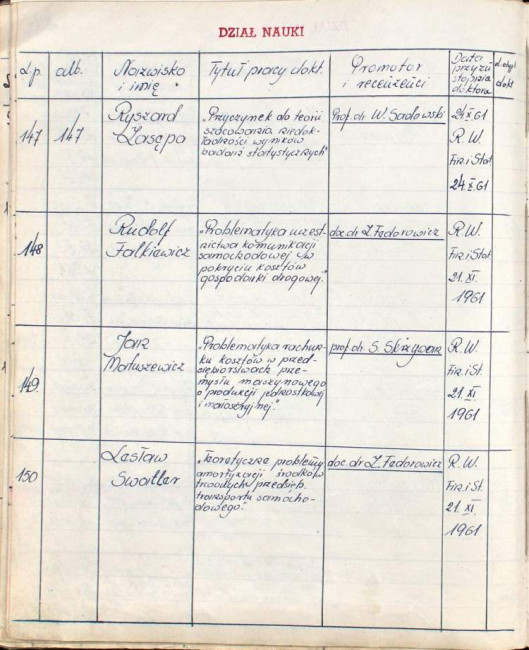 DZIAŁ NAUKI
L.p. alb. Nazwisko i imię Tytuł pracy dokt. Promotor i recenzenci Data przystąpienia
147 147 Ryszard Zasępa
"Przyczynek do teorii
szacowania niedok-
ładności wyników
badań statystycznych"
Prof. dr W. Sadowski
24 X 61
R. W.
Fin. i Stat
24. X. 61
148
Rudolf
Falkiewicz
"Problematyka uczest-
nictwa komunikacji
samochodowej w
pokryciu kosztów
gospodarki drogowej."
doc. dr Z. Fedorowicz
R. W.
Fin. i Stat.
21. XI.
1961
149.
Jan
Matuszewicz
"Problematyka rachun-
ku kosztów w przed-
siębiorstwach prze-
mysłu maszynowego
o produkcji jednostkowej
i małoseryjnej."
prof. dr. S. Skrzywan
R. W.
Fin. i St.
21. XI
1961
150
Lesław
"Teoretyczne problemy
amortyzacji środków
trwałych przedsięb.
transportu samocho-
dowego."
doc. dr Z. Fedorowicz
R. W.
Fin. i St.
21. XI
1961